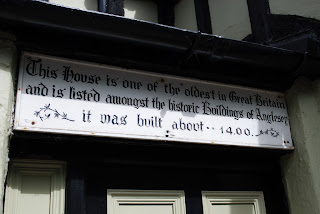 This House is one of the oldest in Great Britain
and is listed amongst the historic Buildings of Anglesey
it was built about·· 1400··